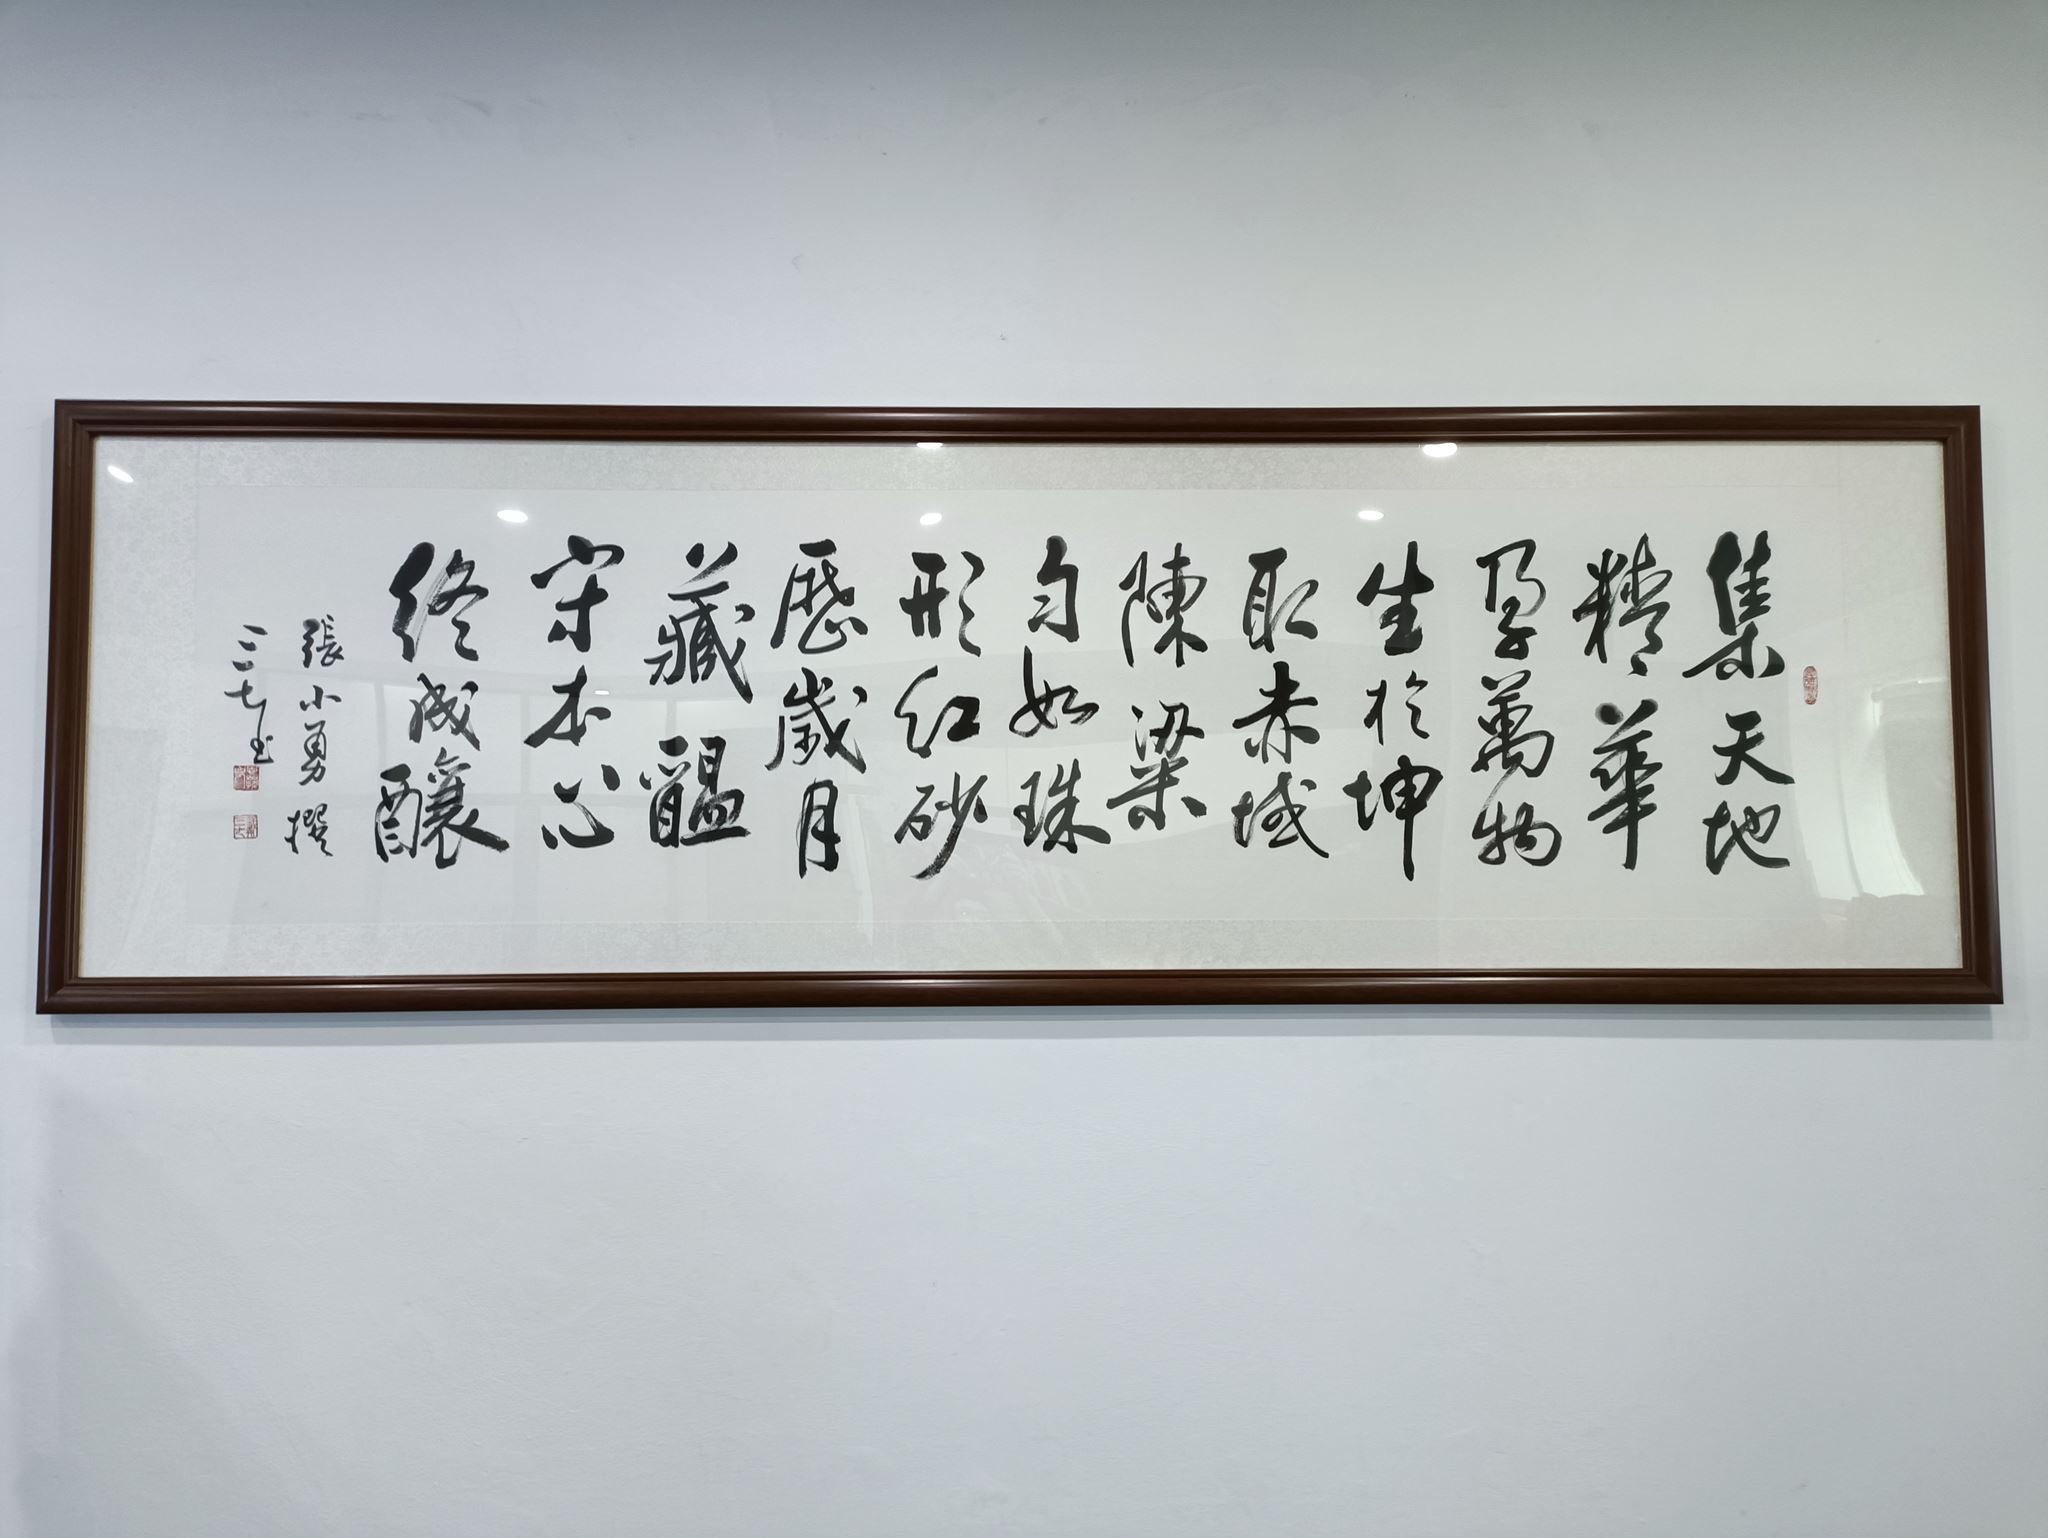 集天地
精華
孕萬物
生於坤
取赤域
陳粱
匀如珠
形紅砂
歷歲月
藏醖
守本心
終成釀
張小勇撰